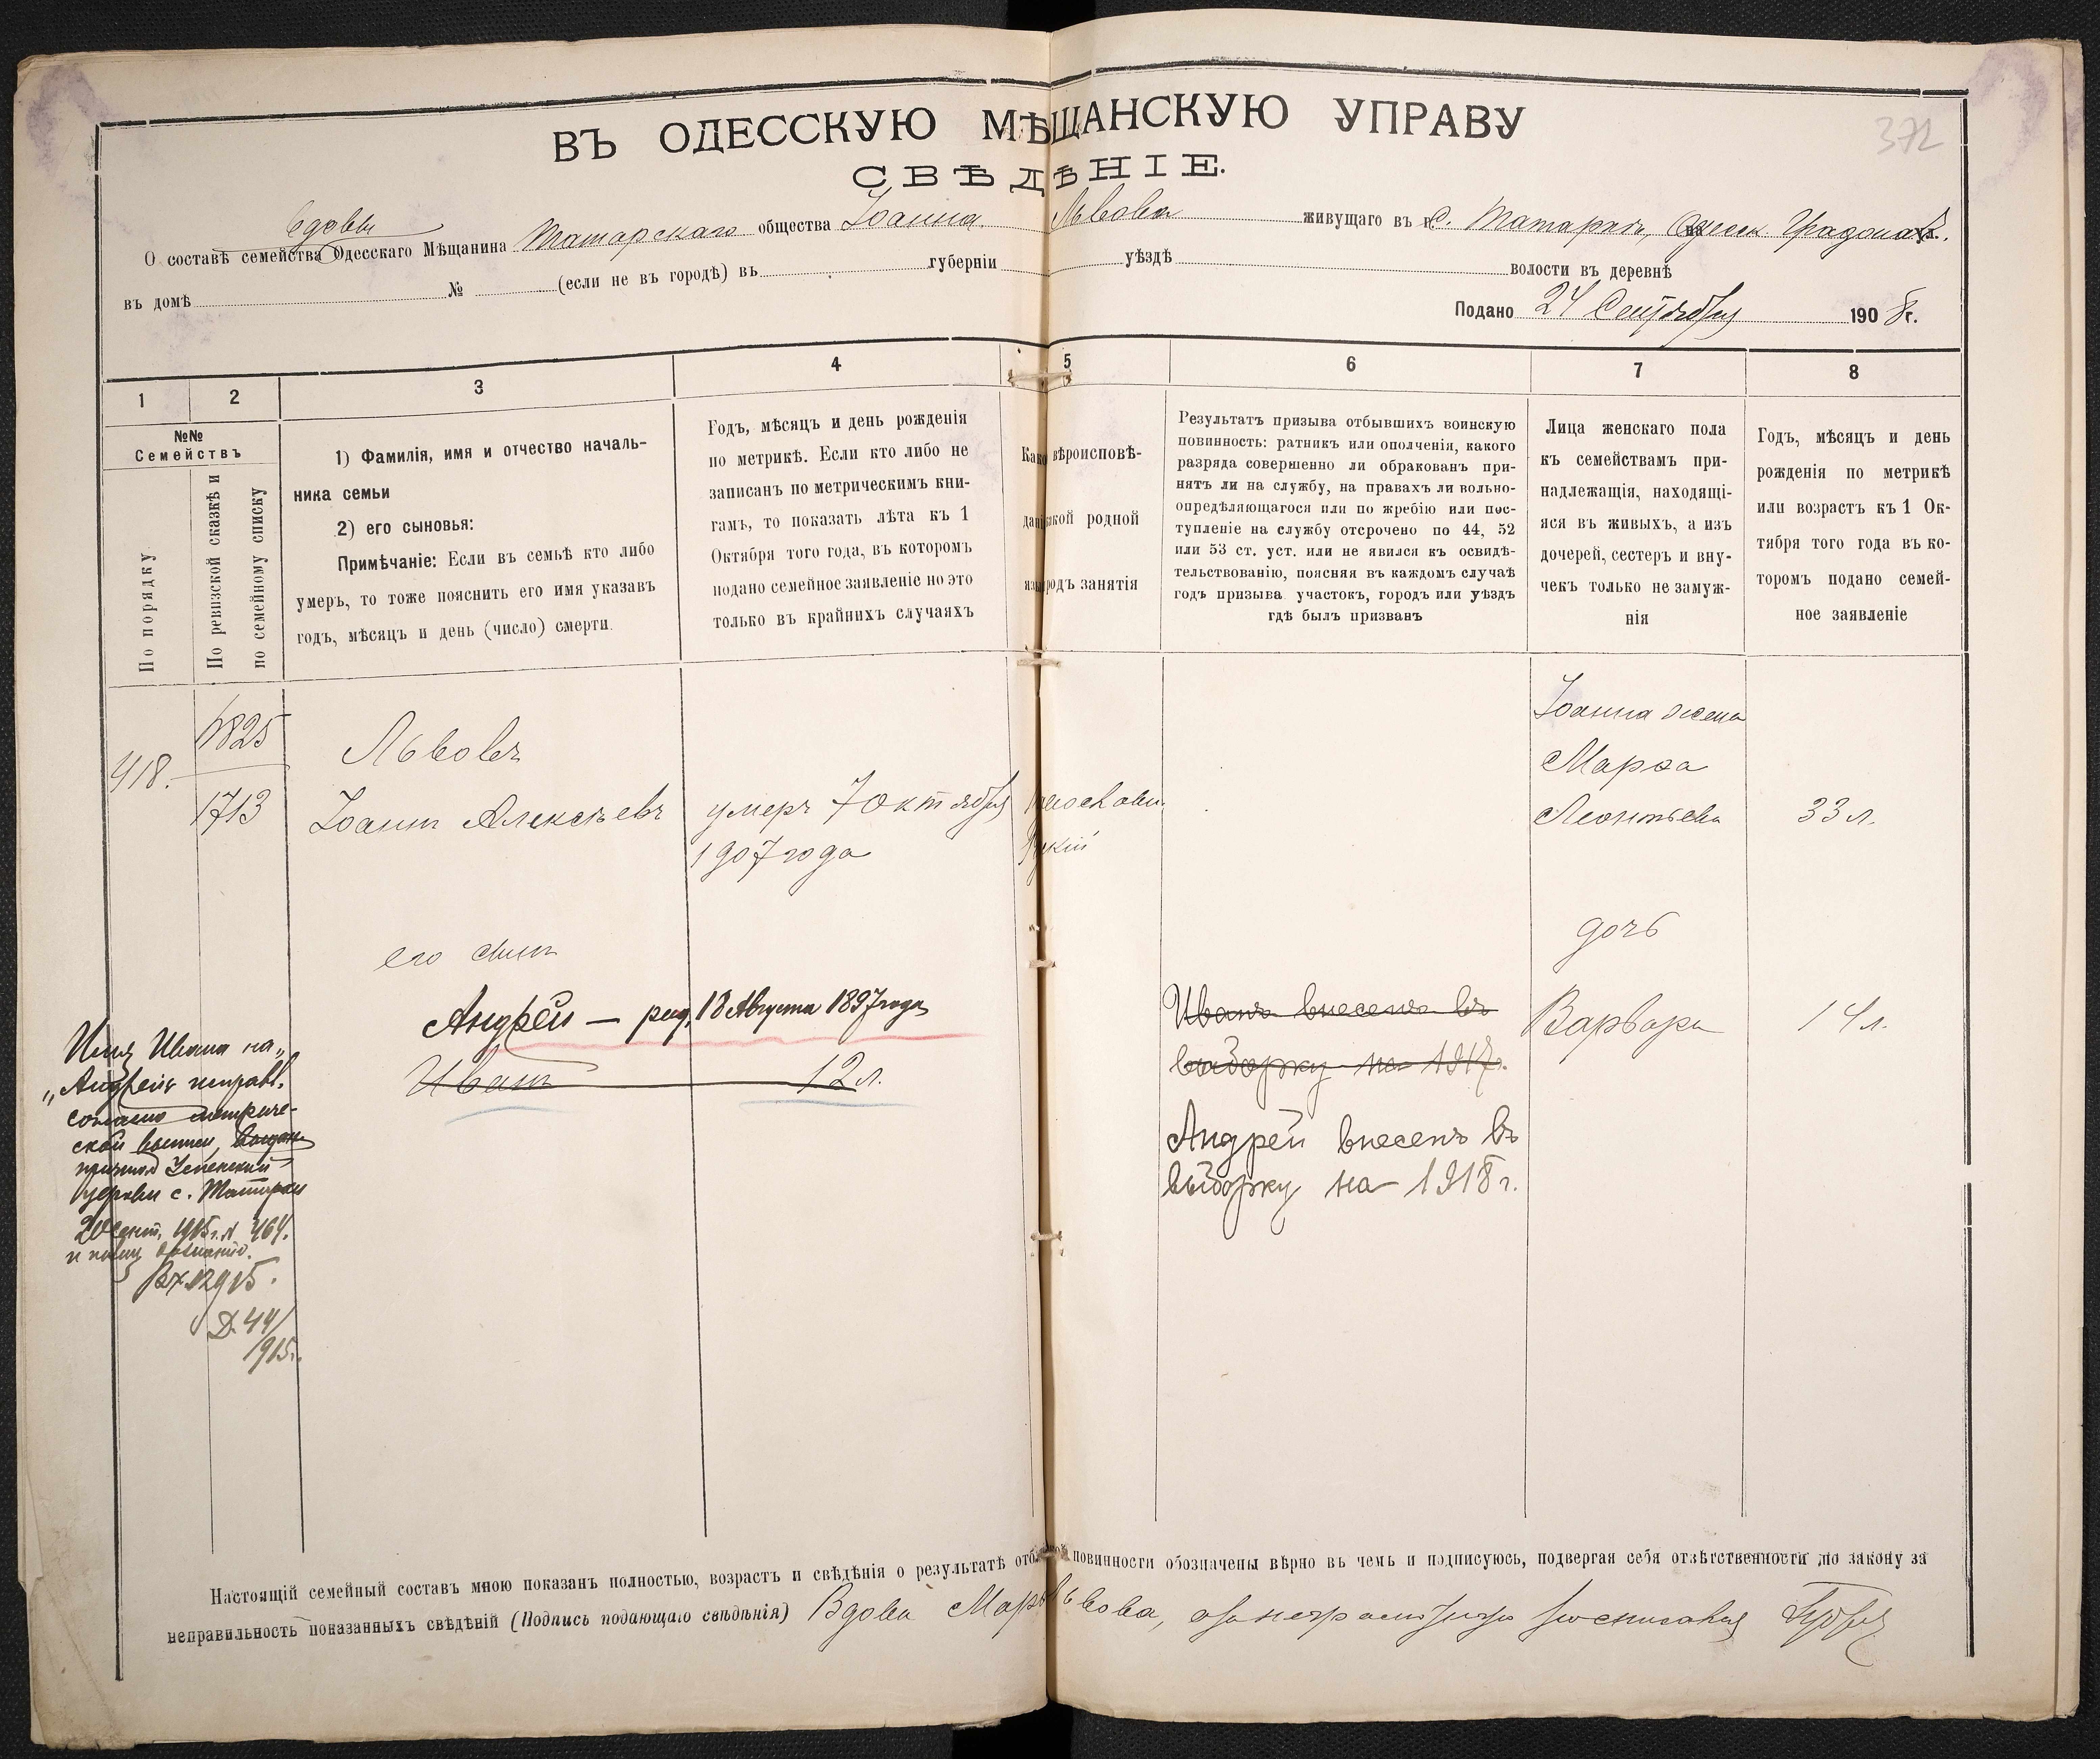 372
ВЪ ОДЕССКУЮ МѢЩАНСКУЮ УПРАВУ
СВѢДѢНІЕ.
вдовы
О составѣ семейства Одесскаго Мѣщанина Татарскаго общества Іоанна Львова живущаго въ с. Татаркѣ, Одесск. Градонач.
въ домѣ № (если не въ городѣ) въ губерніи уѣздѣ волости въ деревнѣ
Подано 24 Сентября 1908 г.
1 2 3 4 5 6 7 8
№№
Семействъ
По порядку
По ревизской сказкѣ и
по семейному списку
1) Фамилія, имя и отчество началь-
ника семьи
2) его сыновья:
Примѣчаніе: Если въ семьѣ кто либо
умеръ, то тоже пояснить его имя указавъ
годъ, мѣсяцъ и день (число) смерти.
Годъ, мѣсяцъ и день рожденія
по метрикѣ. Если кто либо не
записанъ по метрическимъ кни-
гамъ, то показать лѣта къ 1
Октября того года, въ которомъ
подано семейное заявленіе но это
только въ крайнихъ случаяхъ
вѣроисповѣ-
родной
занятія
Результатъ призыва отбывшихъ воинскую
повинность: ратникъ или ополченія, какого
разряда совершенно ли обракованъ при-
нятъ ли на службу, на правахъ ли вольно-
опредѣляющагося или по жребію или пос-
тупленіе на службу отсрочено по 44, 52
или 53 ст. уст. или не явился къ освидѣ-
тельствованію, поясняя въ каждомъ случаѣ
годъ призыва участокъ, городъ или уѣздъ
гдѣ былъ призванъ
Лица женскаго пола
къ семействамъ при-
надлежащія, находящі-
яся въ живыхъ, а изъ
дочерей, сестеръ и вну-
чекъ только не замуж-
нія
Годъ, мѣсяцъ и день
рожденія по метрикѣ
или возрастъ къ 1 Ок-
тября того года въ ко-
торомъ подано семей-
ное заявленіе
418.
6825
1713
Львовъ
Іоаннъ Алексѣевъ
умеръ 7 Октября
1907 года
Іоанна жена
Марѳа
Леонтьева 33 л.
его сынъ
Андрей — род. 18 Августа 1897 года
Иванъ 12 л.
Иванъ внесенъ въ
выборку на 1917 г.
Андрей внесенъ въ
выборку на 1918 г.
дочь
Варвара 14 л.
Имя Ивана на
„Андрей" исправл.
согласно метриче-
ской выписи, выдан.
причтом Успенской
церкви с. Татарки
20 Сент. 1915 г. № 464.
Вх. 12915.
Д. 44/
1915 г.
Настоящій семейный составъ мною показанъ полностью, возрастъ и свѣдѣнія о результатѣ повинности обозначены вѣрно въ чемъ и подписуюсь, подвергая себя отвѣтственности по закону за
неправильность показанныхъ свѣдѣній (Подпись подающаго свѣдѣнія) Вдова Львова, а за неграмотную росписался